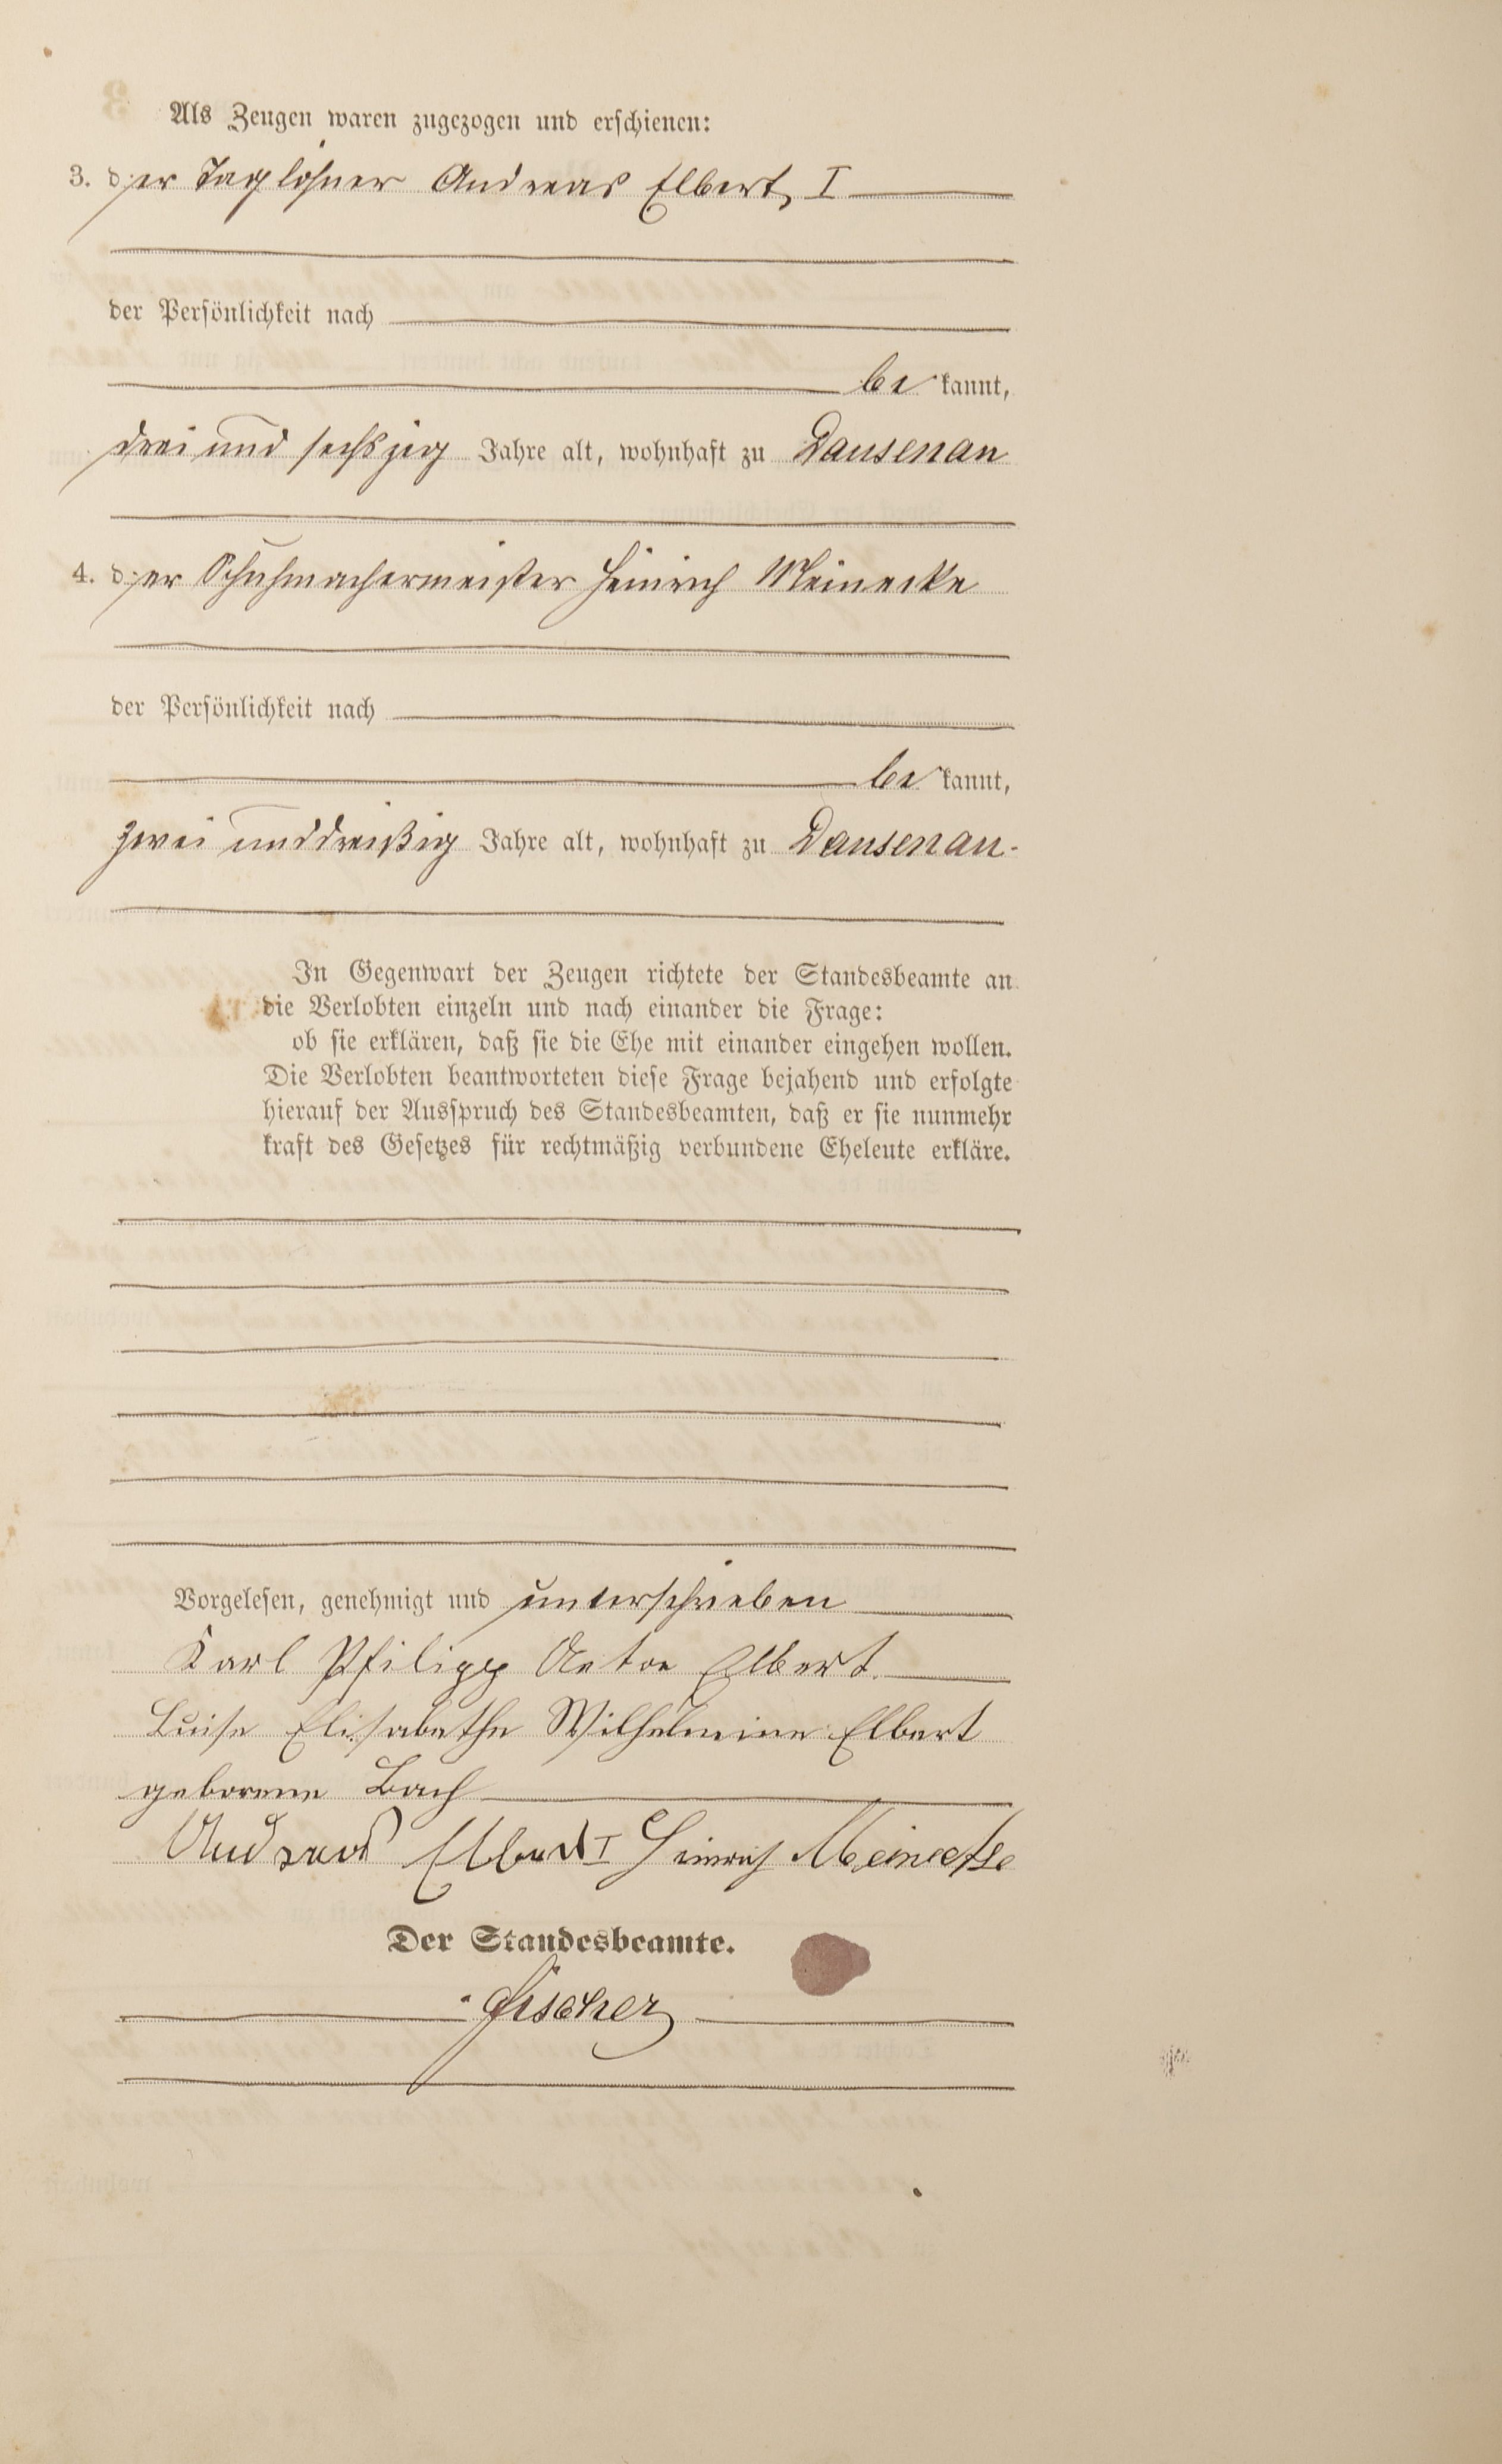 Als Zeugen waren zugezogen und erschienen:
3. der Taglöhner Andreas Elbert, I
der Persönlichkeit nach
be kannt,
drei und sechszig Jahre alt, wohnhaft zu Dausenau
4. der Schuhmachermeister Heinrich Meinecke
der Persönlichkeit nach
be kannt,
zwei und dreißig Jahre alt, wohnhaft zu Dausenau.
In Gegenwart der Zeugen richtete der Standesbeamte an
die Verlobten einzeln und nach einander die Frage:
ob sie erklären, daß sie die Ehe mit einander eingehen wollen.
Die Verlobten beantworteten diese Frage bejahend und erfolgte
hierauf der Ausspruch des Standesbeamten, daß er sie nunmehr
kraft des Gesetzes für rechtmäßig verbundene Eheleute erkläre.
Vorgelesen, genehmigt und unterschrieben
Karl Philipp Anton Elbert.
Luise Elisabethe Wilhelmine Elbert
geborene Bach
Andreas Elbert I Heinrich Meinecke
Der Standesbeamte.
Fischer